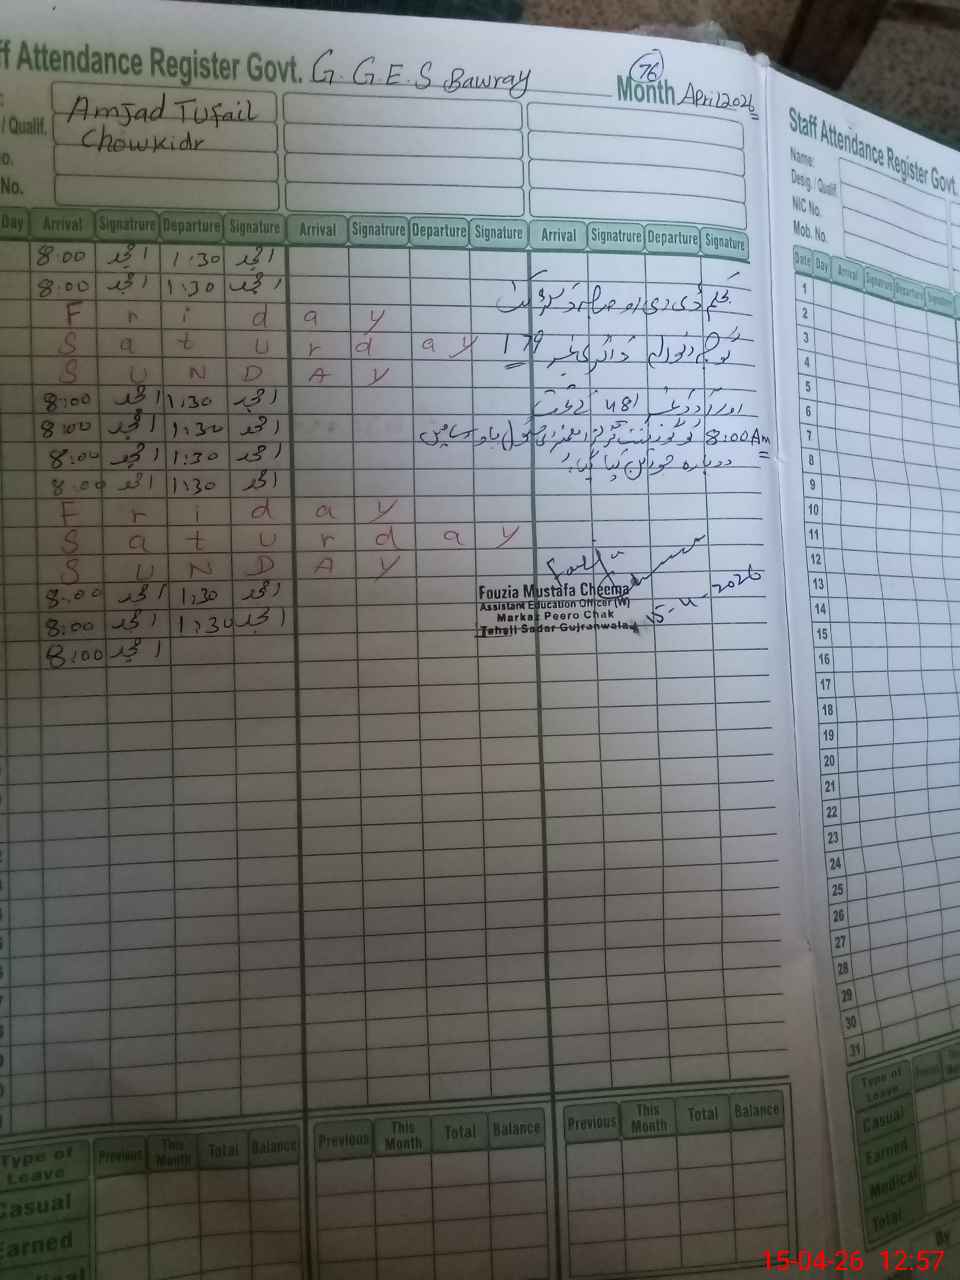 ff Attendance Register Govt. G.G.E.S Bawray
76
Month April 2026
/ Qualif.
o.
No.
Amjad Tufail
Chowkidr
Day Arrival Signatrure Departure Signature Arrival Signatrure Departure Signature Arrival Signatrure Departure Signature
8:00 امجد 1:30 امجد
8:00 امجد 1:30 امجد
F r i d a y
S a t u r d a y
S U N D A y
8:00 امجد 1:30 امجد
8:00 امجد 1:30 امجد
8:00 امجد 1:30 امجد
8:00 امجد 1:30 امجد
F r i d a y
S a t u r d a y
S U N D A y
8:00 امجد 1:30 امجد
8:00 امجد 1:30 امجد
8:00 امجد
179
اور 481 تحت
8:00 Am
دوبارہ کیا گیا۔
Fouzia Mustafa Cheema
Assistant Education Officer (W)
Markaz Peero Chak
Tehsil Sadar Gujranwala
15-4-2026
Type of Leave Previous This Month Total Balance Previous This Month Total Balance Previous This Month Total Balance
Casual
Earned
Staff Attendance Register Govt.
Name:
Desig. / Qualif.
NIC No.
Mob. No.
Date Day Arrival Signatrure Departure Signature
1
2
3
4
5
6
7
8
9
10
11
12
13
14
15
16
17
18
19
20
21
22
23
24
25
26
27
28
29
30
31
Type of Leave
Casual
Earned
Medical
Total
By
15-04-26 12:57